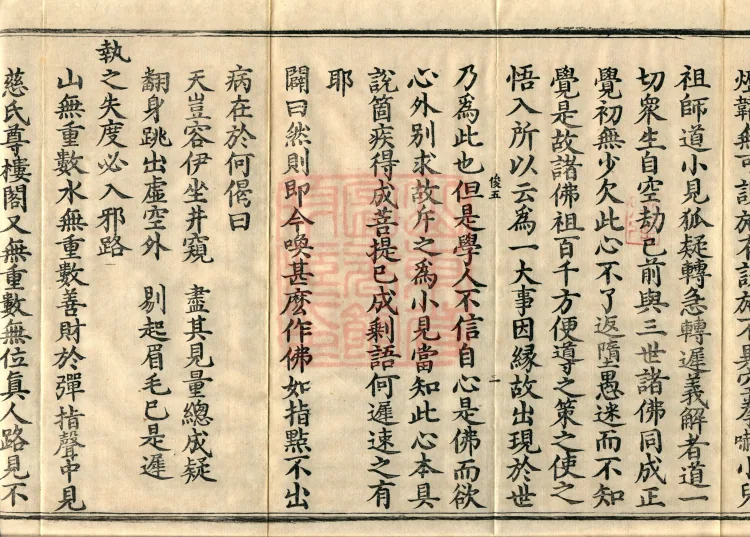 祖師道小見狐疑轉急轉遲義解者道一
切衆生自空劫已前與三世諸佛同成正
覺初無少欠此心不了返墮愚迷而不知
覺是故諸佛祖百千方便導之策之使之
悟入所以云爲一大事因緣故出現於世
俊五
二
乃爲此也但是學人不信自心是佛而欲
心外別求故斥之爲小見當知此心本具
說箇疾得成菩提已成剩語何遲速之有
耶
闢曰然則即今喚甚麽作佛如指點不出
病在於何偈曰
天豈容伊坐井窺 盡其見量總成疑
翻身跳出虛空外 剔起眉毛已是遲
執之失度必入邪路
山無重數水無重數善財於彈指聲中見
慈氏尊樓閣又無重數無位眞人路見不